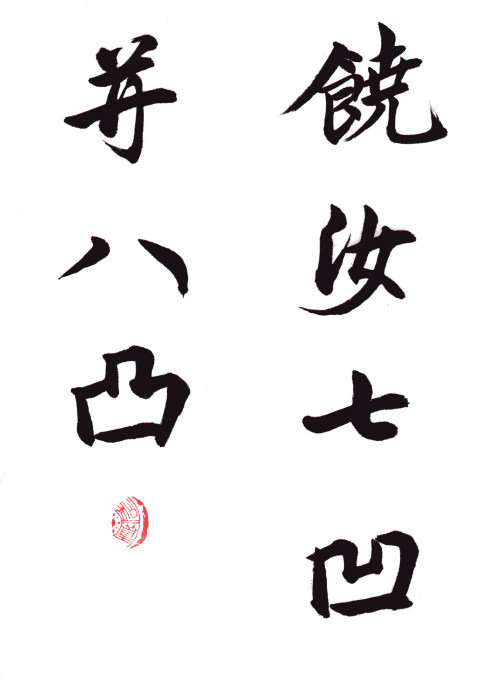 饒汝七凹
并八凸